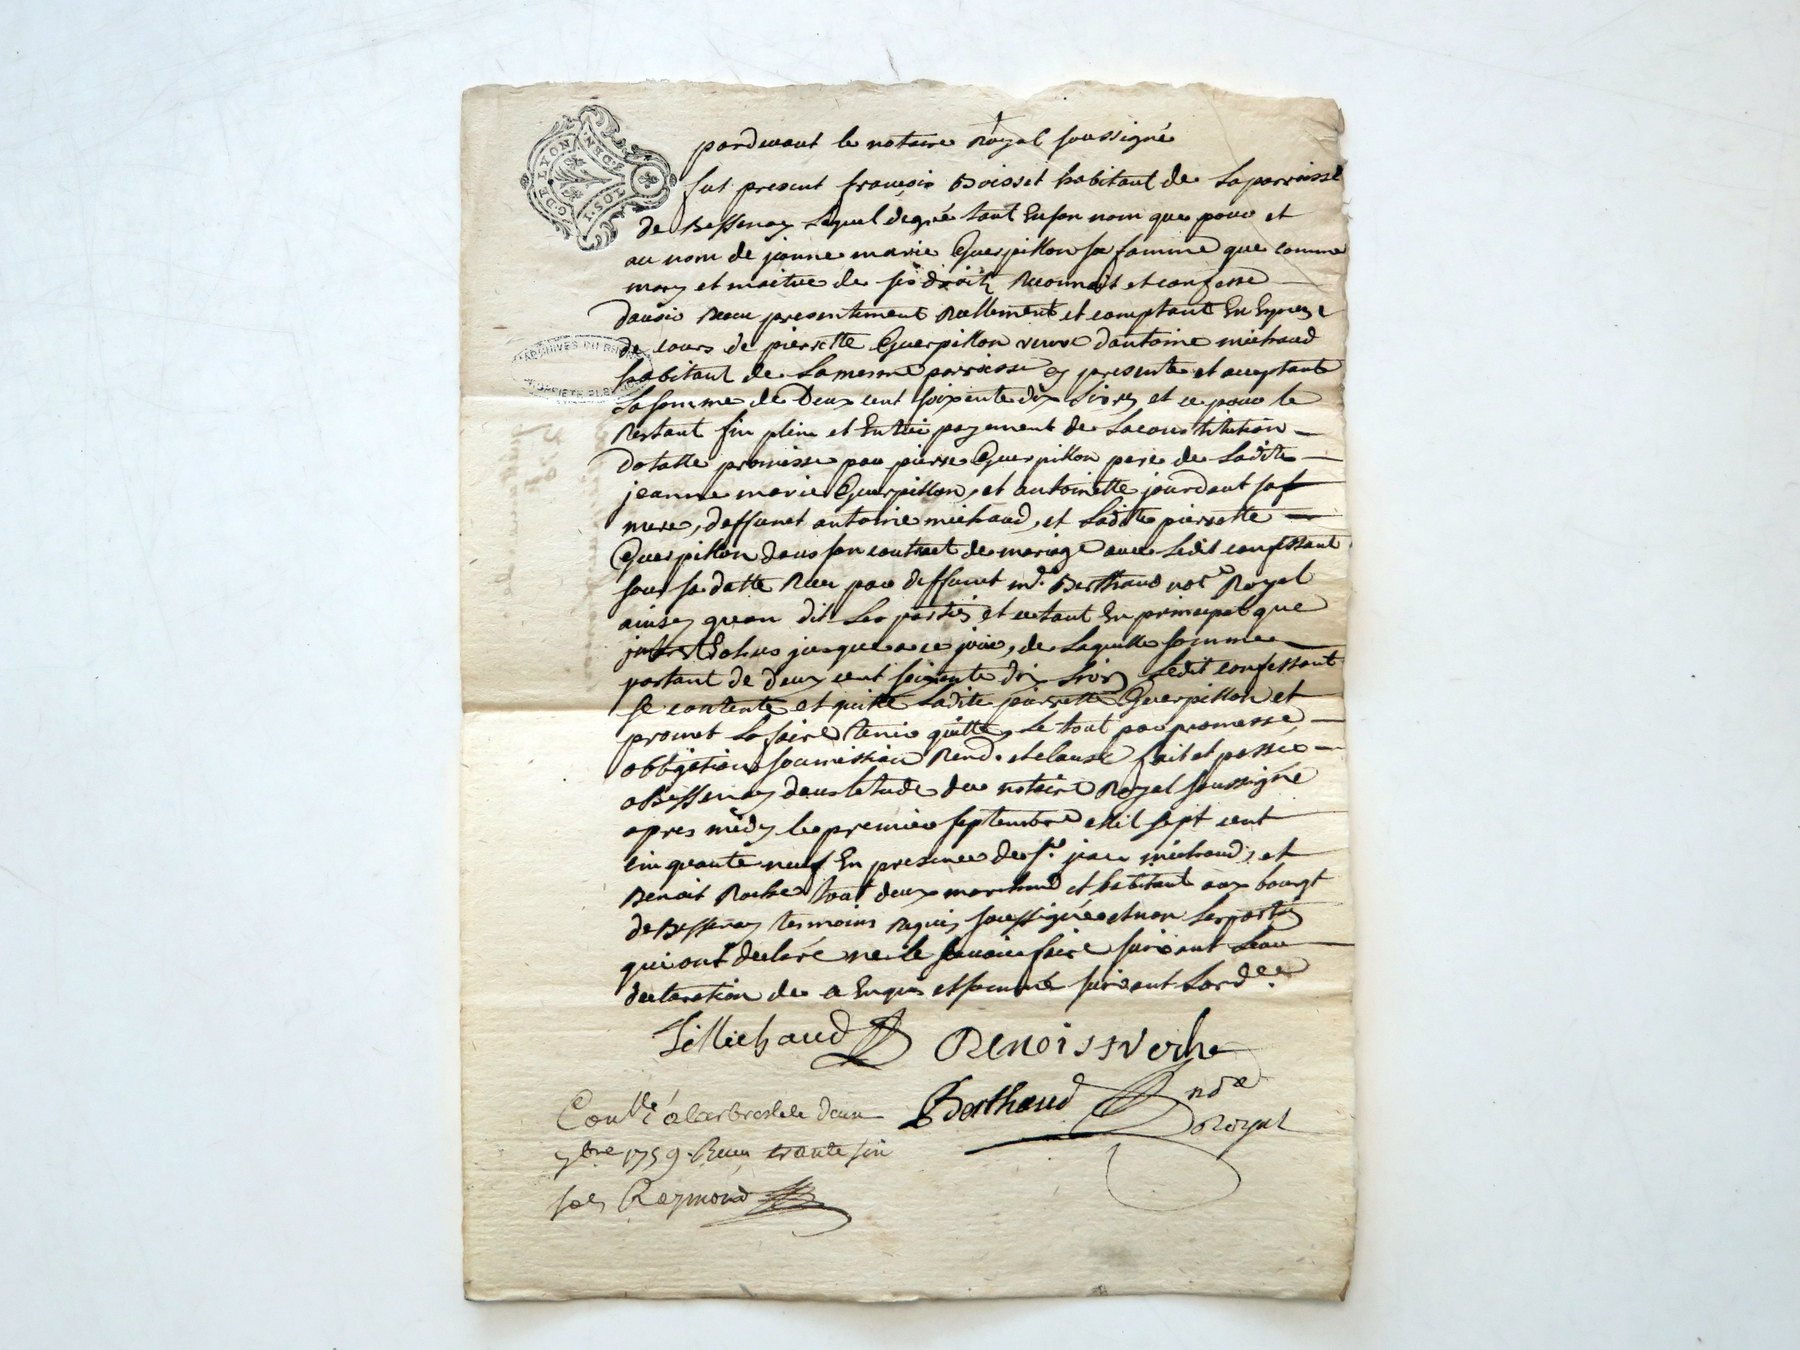 pardevant le notaire Royal soussigné
fut present françois Boisset habitant de La parroisse
de Bessenay Lequel degré tant En son nom que pour et
au nom de jeanne marie Guerpillon sa famme que comme
mary et maitre de ses droits Reconnait et confesse
davoir Receu presentement Reellement et comptant En Espece
de cours de pierrette Guerpillon veuve dantoine michaud
habitant de La meme parroisse cy presente et acceptante
La somme de Deux cent soixente dix Livres et ce pour le
Restant fin plein et Entier payement de La constitution
dotalle promise par pierre Guerpillon pere de Ladite
jeanne marie Guerpillon, et antoinette jourdant sa
mere, deffunct antoine michaud, et Ladite pierrette
Guerpillon dans son contract de mariage avec Ledit confessant
sous sa datte Receu par deffunct me Berthaud notre Royal
ainsy quon dit Les parties et ce tant En principal que
Echus jusques a ce jour, de Laquelle somme
portant de deux cent soixente dix Livres Ledit confessant
se contente et quitte Ladite pierrette Guerpillon et
promet La faire tenir quitte, Le tout par promesse,
obligation soumission Rend. et clause fait et passé
a Bessenay dans letude du notaire Royal soussigné
apres midy le premier septembre Mil sept cent
cinquante neuf En presence de sr. jean michaud, et
Benoit Roche tout deux marchand et habitant aux bourgt
de Bessenay temoins Requis soussignés et non Les parties
qui ont declaré ne le savoir faire suivant Leur
declaration de ce Enquis et sommé suivant Lordce.
Michaud
Berthaud nore
Royal
Conllé a Larbresle le deux
7bre 1759. Receu trante six
sols Raymond
G DE LYON
ARCHIVES DU RHONE